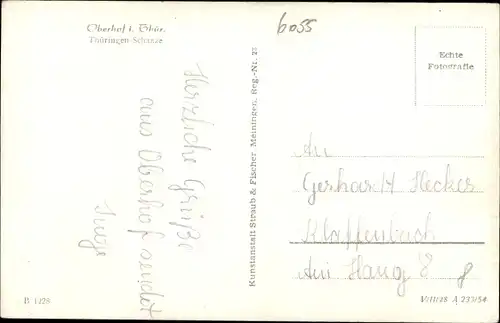 Oberhof i. Thür.
Thüringen-Schanze
6055
Echte
Fotografie
Herzliche Grüße
aus Oberhof sendet
Kunstanstalt Straub & Fischer Meiningen, Reg.-Nr. 23
An
Gerhardt Hecker
Klaffenbach
Am Hang 8
8
B 1228
V/11/28 A 233/54